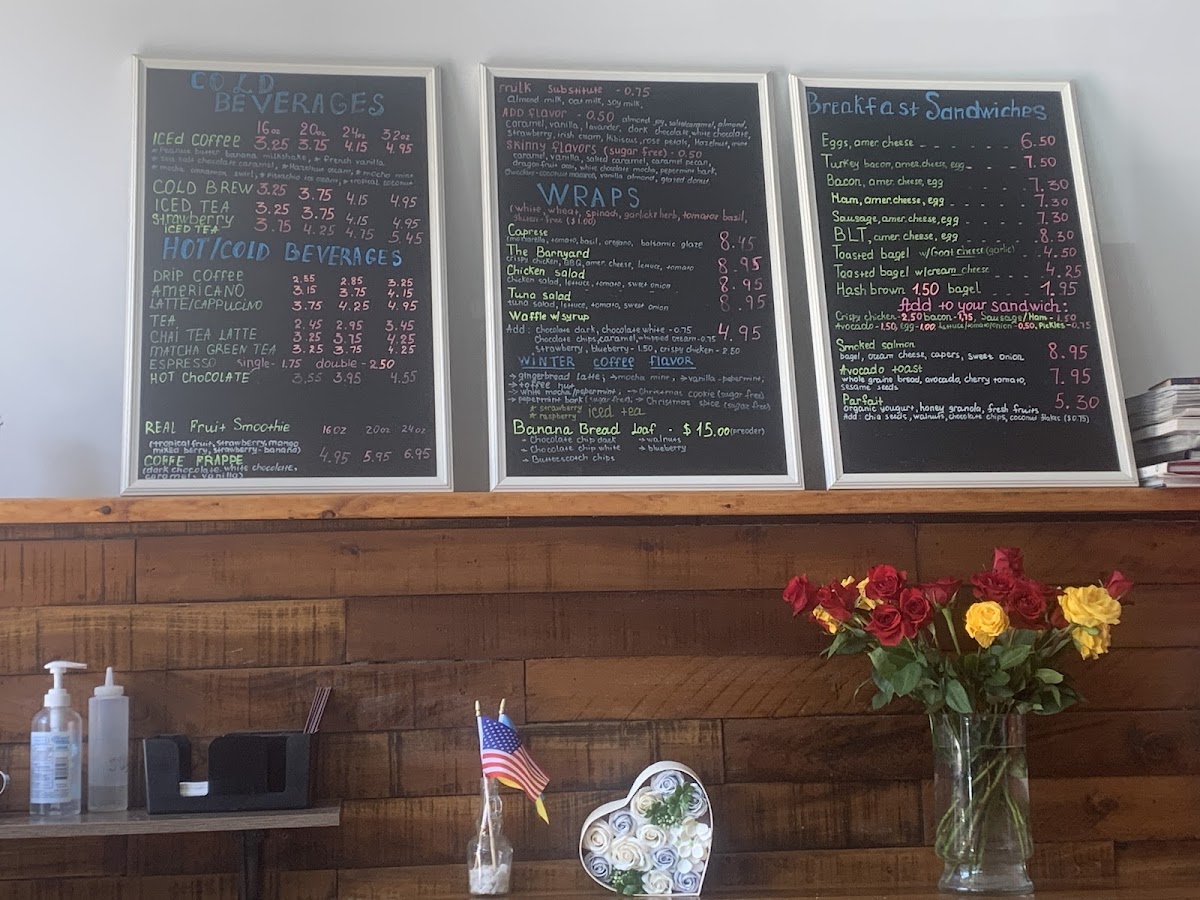 COLD
BEVERAGES
16oz 20oz 24oz 32oz
ICED COFFEE 3.25 3.75 4.15 4.95
* Peanut butter banana milkshake, * French vanilla
* sea salt chocolate caramel, * Hazelnut cream, * mocha mint
COLD BREW 3.25 3.75 4.15 4.95
ICED TEA 3.25 3.75 4.15 4.95
Strawberry
ICED TEA 3.75 4.25 4.75 5.45
HOT/COLD BEVERAGES
DRIP COFFEE 2.85 3.25
AMERICANO 3.15 3.75 4.15
LATTE/CAPPUCINO 3.75 4.25 4.95
TEA 2.45 2.95 3.45
CHAI TEA LATTE 3.25 3.75 4.25
MATCHA GREEN TEA 3.25 3.75 4.25
ESPRESSO single- 1.75 double - 2.50
HOT CHOCOLATE 3.55 3.95 4.55
REAL Fruit Smoothie 16oz 20oz 24oz
(tropical fruit, strawberry, mango
mixed berry, strawberry-banana)
COFFE FRAPPE 4.95 5.95 6.95
(dark chocolate, white chocolate,
caramel, vanilla)
milk substitute - 0.75
almond milk, oat milk, soy milk,
ADD flavor - 0.50 almond joy, salted caramel, almond,
caramel, vanilla, lavander, dark chocolate, white chocolate,
strawberry, irish cream, hibiscus, rose petals, Hazelnut, mint
Skinny flavors (sugar free) - 0.50
caramel, vanilla, salted caramel, caramel pecan,
dragon fruit, white chocolate mocha, pepermint bark,
WRAPS
(white, wheat, spinach, garlic&herb, tomatoe basil,
gluten-free ($1.00)
Caprese 8.45
(mozzarella, tomato, basil, oregano, balsamic glaze
The Barnyard 8.95
crispy chicken, BBQ, amer. cheese, lettuce, tomato
Chicken salad 8.95
chicken salad, lettuce, tomato, sweet onion
Tuna salad 8.95
tuna salad, lettuce, tomato, sweet onion
Waffle w/syrup 4.95
Add: chocolate dark, chocolate white - 0.75
Chocolate chips, caramel, whipped cream - 0.75
strawberry, blueberry - 1.50, crispy chicken - 2.50
WINTER COFFEE FLAVOR
→ gingerbread latte; → mocha mint, → vanilla-pepermint;
→ toffee nut
→ white mocha/pepermint; → Christmas cookie (sugar free)
→ pepermint bark (sugar free); → Christmas spice (sugar free)
* strawberry
* raspberry iced tea
Banana Bread Loaf - $15.00 (preorder)
- Chocolate chip dark → walnuts
- Chocolate chip white → blueberry
- Butterscotch chips
Breakfast Sandwiches
Eggs, amer. cheese 6.50
Turkey bacon, amer. cheese, egg 7.50
Bacon, amer. cheese, egg 7.30
Ham, amer. cheese, egg 7.30
Sausage, amer. cheese, egg 7.30
BLT, amer. cheese, egg 8.30
Toasted bagel w/Goat cheese (garlic) 4.50
Toasted bagel w/cream cheese 4.25
Hash brown 1.50 bagel 1.95
Add to your sandwich:
Crispy chicken - 2.50 bacon - 1.75, Sausage/Ham - 1.50
Avocado - 1.50, egg - 1.00, Lettuce/tomato/onion - 0.50, Pickles - 0.75
Smoked salmon 8.95
bagel, cream cheese, capers, sweet onion
Avocado toast 7.95
whole grains bread, avocado, cherry tomato,
sesame seeds
Parfait 5.30
organic yougurt, honey granola, fresh fruits
Add: chia seeds, walnuts, chocolate chips, coconut flakes ($0.75)